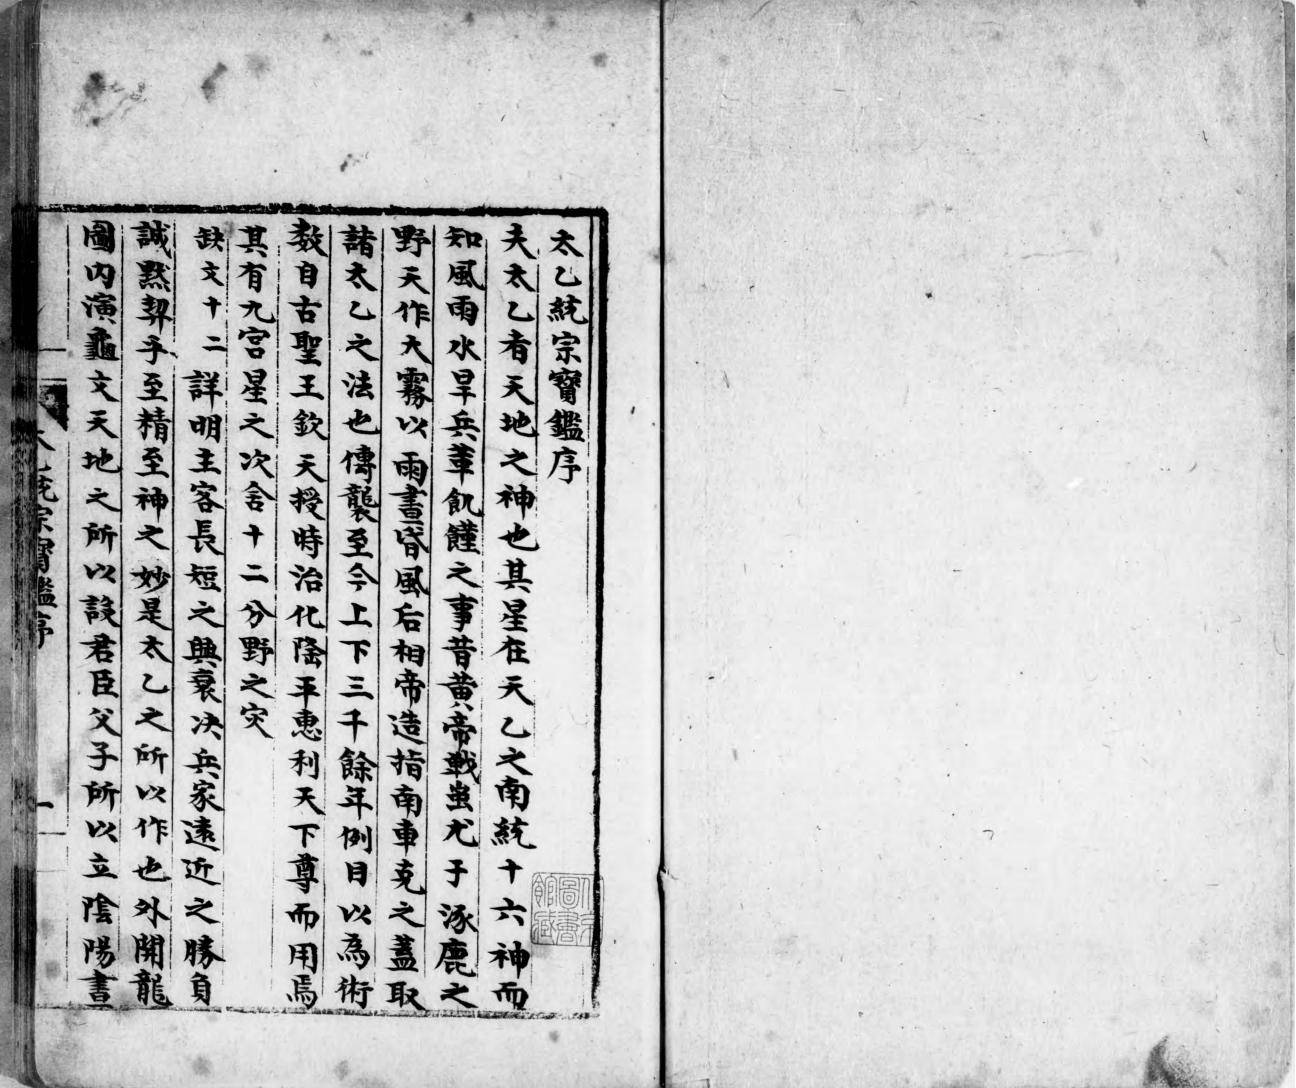 太乙統宗寶鑑序
夫太乙者天地之神也其星在天乙之南統十六神而
知風雨水旱兵革飢饉之事昔黄帝戰蚩尤于涿鹿之
野天作大霧以雨晝昏風后相帝造指南車克之蓋取
諸太乙之法也傳襲至今上下三千餘年例目以為術
数自古聖王欽天授時治化隆平惠利天下尊而用焉
其有九宫星之次舍十二分野之灾
缺文十二詳明主客長短之興衰决兵家遠近之勝負
誠默契乎至精至神之妙是太乙之所以作也外開龍
圖内演龜文天地之所以設君臣父子所以立陰陽晝
太乙統宗寶鑑序
一